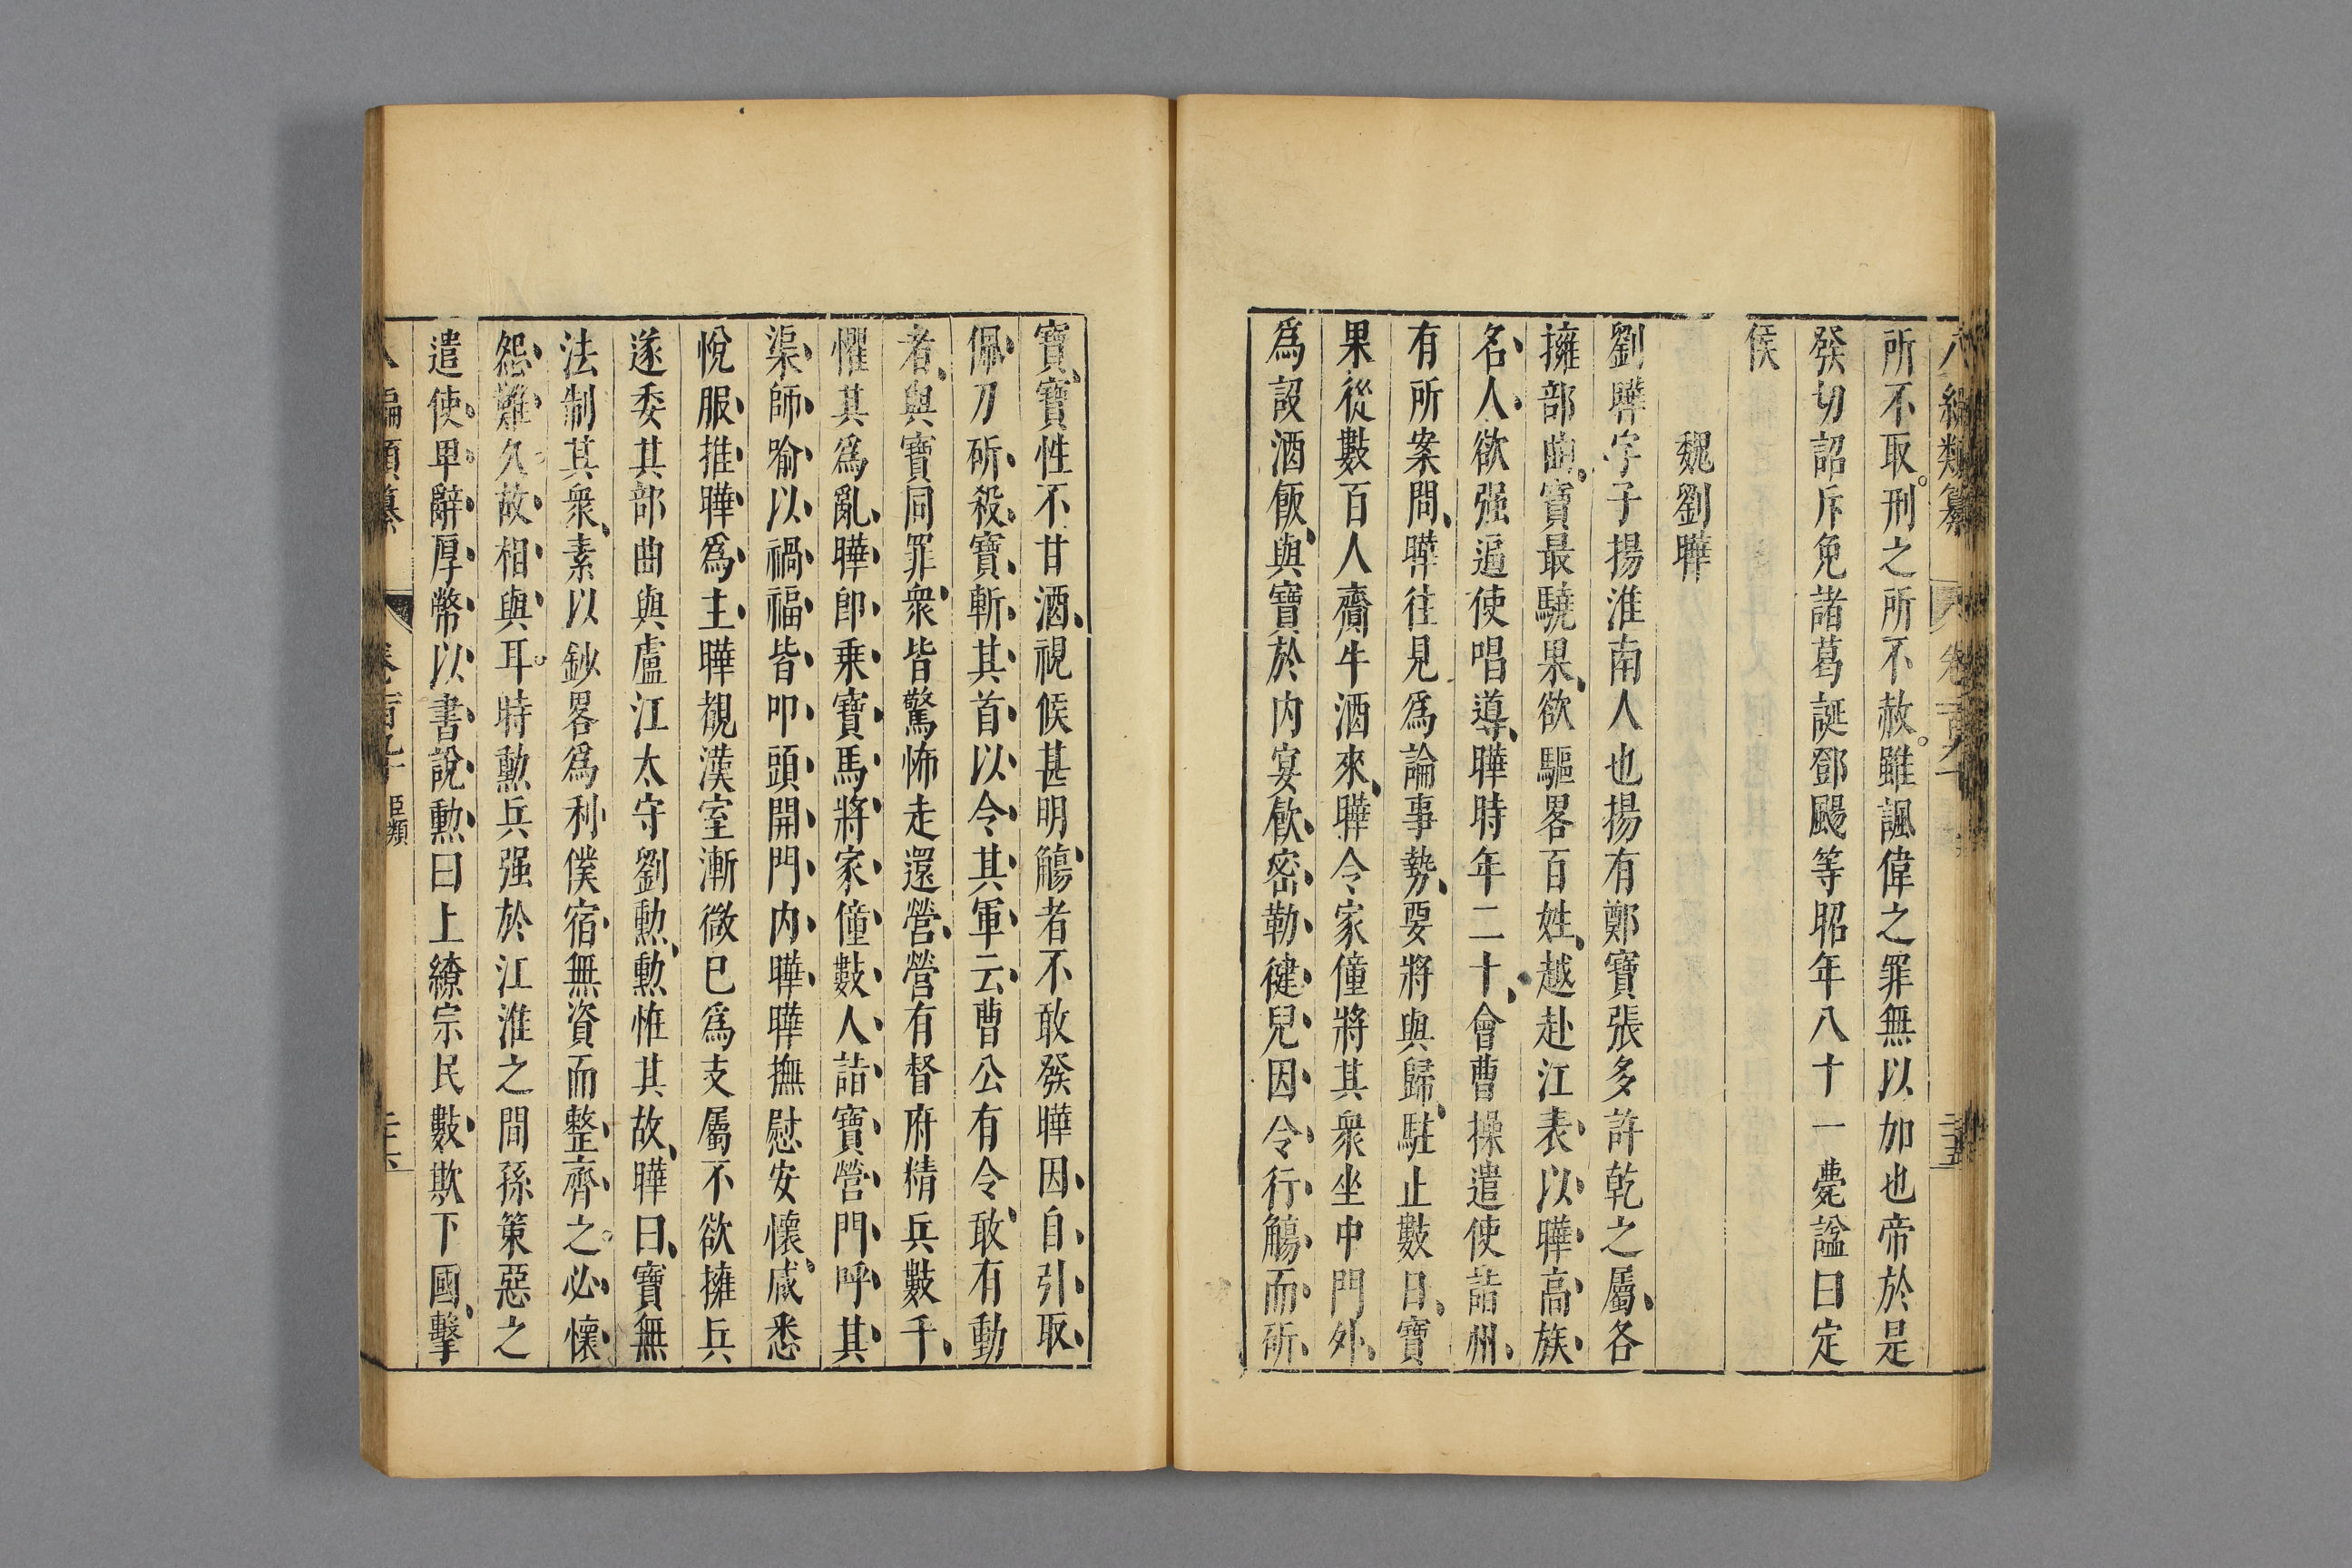 八編類纂 卷百九十 三十五
所不取刑之所不赦雖諷偉之罪無以加也帝於是
發切詔斥免諸葛誕鄧颺等昭年八十一薨諡曰定
侯
魏劉曄
劉曄字子揚淮南人也揚有鄭寶張多許乾之屬各
擁部曲寶最驍果欲驅畧百姓越赴江表以曄高族
名人欲强逼使唱導曄時年二十會曹操遣使詣州
有所案問曄往見爲論事勢要將與歸駐止數日寶
果從數百人齎牛酒來曄令家僮將其衆坐中門外
爲設酒飯與寶於内宴飲密勒健兒因令行觴而斫
寶寶性不甘酒視候甚明觴者不敢發曄因自引取
佩刀斫殺寶斬其首以令其軍云曹公有令敢有動
者與寶同罪衆皆驚怖走還營營有督府精兵數千
懼其爲亂曄卽乗寶馬將家僮數人詣寶營門呼其
渠師喻以禍福皆叩頭開門内曄曄撫慰安懷咸悉
悅服推曄爲主曄覩漢室漸微已爲支屬不欲擁兵
遂委其部曲與盧江太守劉勲勲恠其故曄曰寶無
法制其衆素以鈔畧爲利僕宿無資而整齊之必懷
怨難久故相與耳時勲兵强於江淮之間孫策惡之
遣使卑辭厚幣以書說勲曰上繚宗民數欺下國擊
八編類纂 卷百九十 臣類 三十六